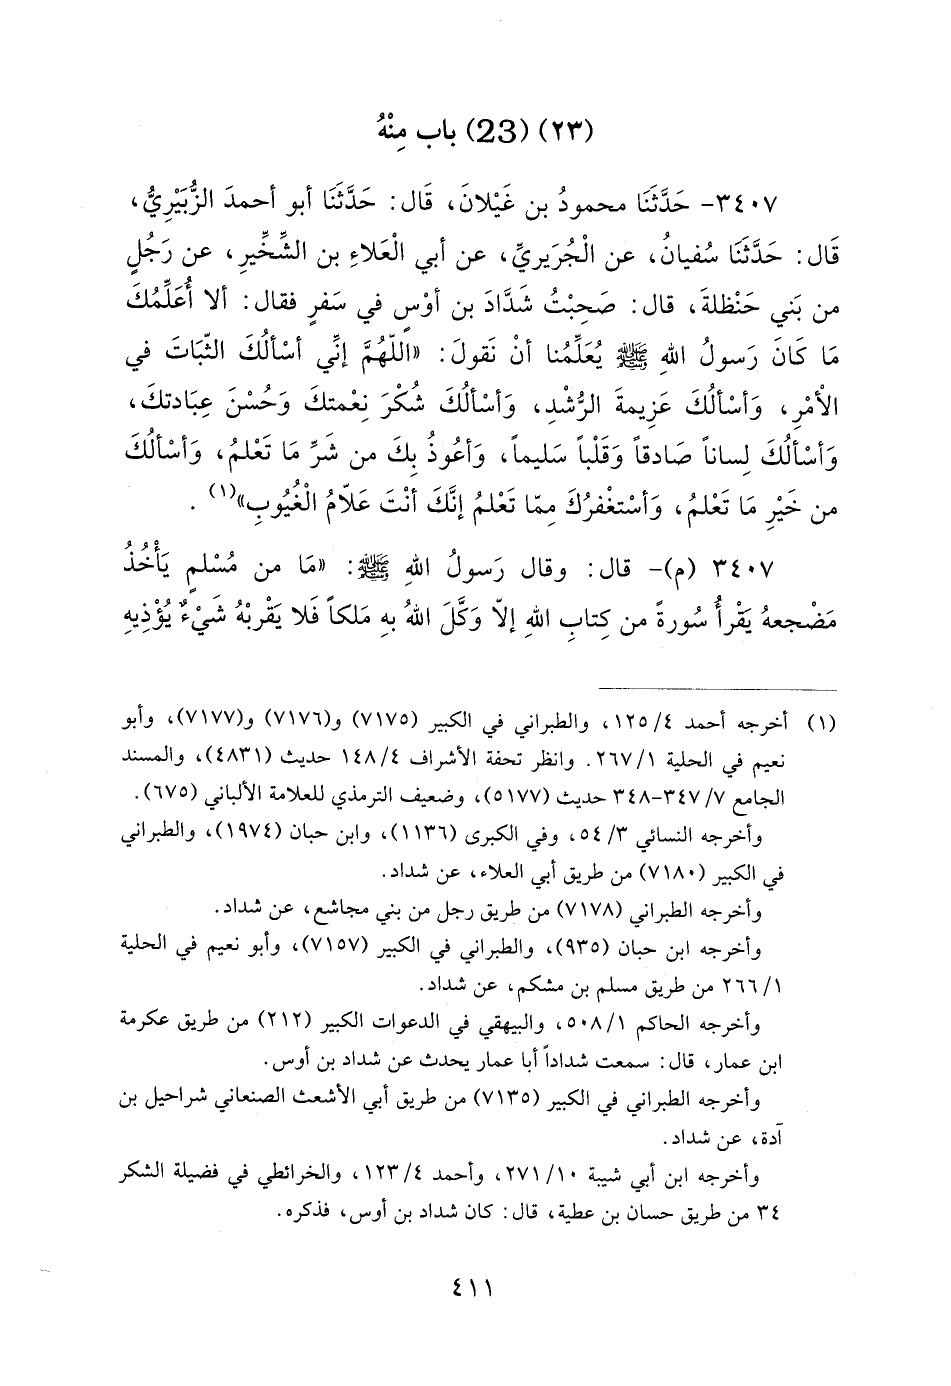 (٢٣) (23) باب مِنْهُ
٣٤٠٧- حَدَّثَنَا محمودُ بن غَيْلانَ، قَال: حَدَّثَنَا أبو أحمدَ الزُّبَيْرِيُّ،
قَال: حَدَّثَنَا سُفيانُ، عن الْجُرَيريِّ، عن أبي الْعَلاءِ بن الشِّخِّيرِ، عن رَجُلٍ
من بَني حَنْظلةَ، قال: صَحِبْتُ شَدَّادَ بن أوْسٍ في سَفرٍ فقال: ألا أُعَلِّمُكَ
مَا كَانَ رَسولُ اللهِ ﷺ يُعَلِّمُنا أنْ نَقولَ: «اللّهُمَّ إنِّي أسْألُكَ الثّبَاتَ في
الأمْرِ، وَأسْألُكَ عَزِيمةَ الرُّشْدِ، وَأسْألُكَ شُكْرَ نِعْمتكَ وَحُسْنَ عِبَادتكَ،
وَأسْألُكَ لِساناً صَادقاً وَقَلْباً سَليماً، وَأعُوذُ بِكَ من شَرِّ مَا تَعْلمُ، وَأسْألُكَ
من خَيْرِ مَا تَعْلمُ، وَأسْتغْفرُكَ مِمّا تَعْلمُ إنَّكَ أنْتَ عَلاّمُ الْغُيُوبِ»(١) .
٣٤٠٧ (م)- قال: وقال رَسولُ اللهِ ﷺ: «مَا من مُسْلمٍ يَأْخُذُ
مَضْجعهُ يَقْرأُ سُورةً من كِتابِ اللهِ إلاّ وَكَّلَ اللهُ بهِ مَلكاً فَلا يَقْربْهُ شَيْءٌ يُؤْذِيهِ
(١) أخرجه أحمد ٤/ ١٢٥، والطبراني في الكبير (٧١٧٥) و(٧١٧٦) و(٧١٧٧)، وأبو
نعيم في الحلية ١/ ٢٦٧. وانظر تحفة الأشراف ٤/ ١٤٨ حديث (٤٨٣١)، والمسند
الجامع ٧/ ٣٤٧-٣٤٨ حديث (٥١٧٧)، وضعيف الترمذي للعلامة الألباني (٦٧٥).
وأخرجه النسائي ٣/ ٥٤، وفي الكبرى (١١٣٦)، وابن حبان (١٩٧٤)، والطبراني
في الكبير (٧١٨٠) من طريق أبي العلاء، عن شداد.
وأخرجه الطبراني (٧١٧٨) من طريق رجل من بني مجاشع، عن شداد.
وأخرجه ابن حبان (٩٣٥)، والطبراني في الكبير (٧١٥٧)، وأبو نعيم في الحلية
١/ ٢٦٦ من طريق مسلم بن مشكم، عن شداد.
وأخرجه الحاكم ١/ ٥٠٨، والبيهقي في الدعوات الكبير (٢١٢) من طريق عكرمة
ابن عمار، قال: سمعت شداداً أبا عمار يحدث عن شداد بن أوس.
وأخرجه الطبراني في الكبير (٧١٣٥) من طريق أبي الأشعث الصنعاني شراحيل بن
آدة، عن شداد.
وأخرجه ابن أبي شيبة ١٠/ ٢٧١، وأحمد ٤/ ١٢٣، والخرائطي في فضيلة الشكر
٣٤ من طريق حسان بن عطية، قال: كان شداد بن أوس، فذكره.
٤١١